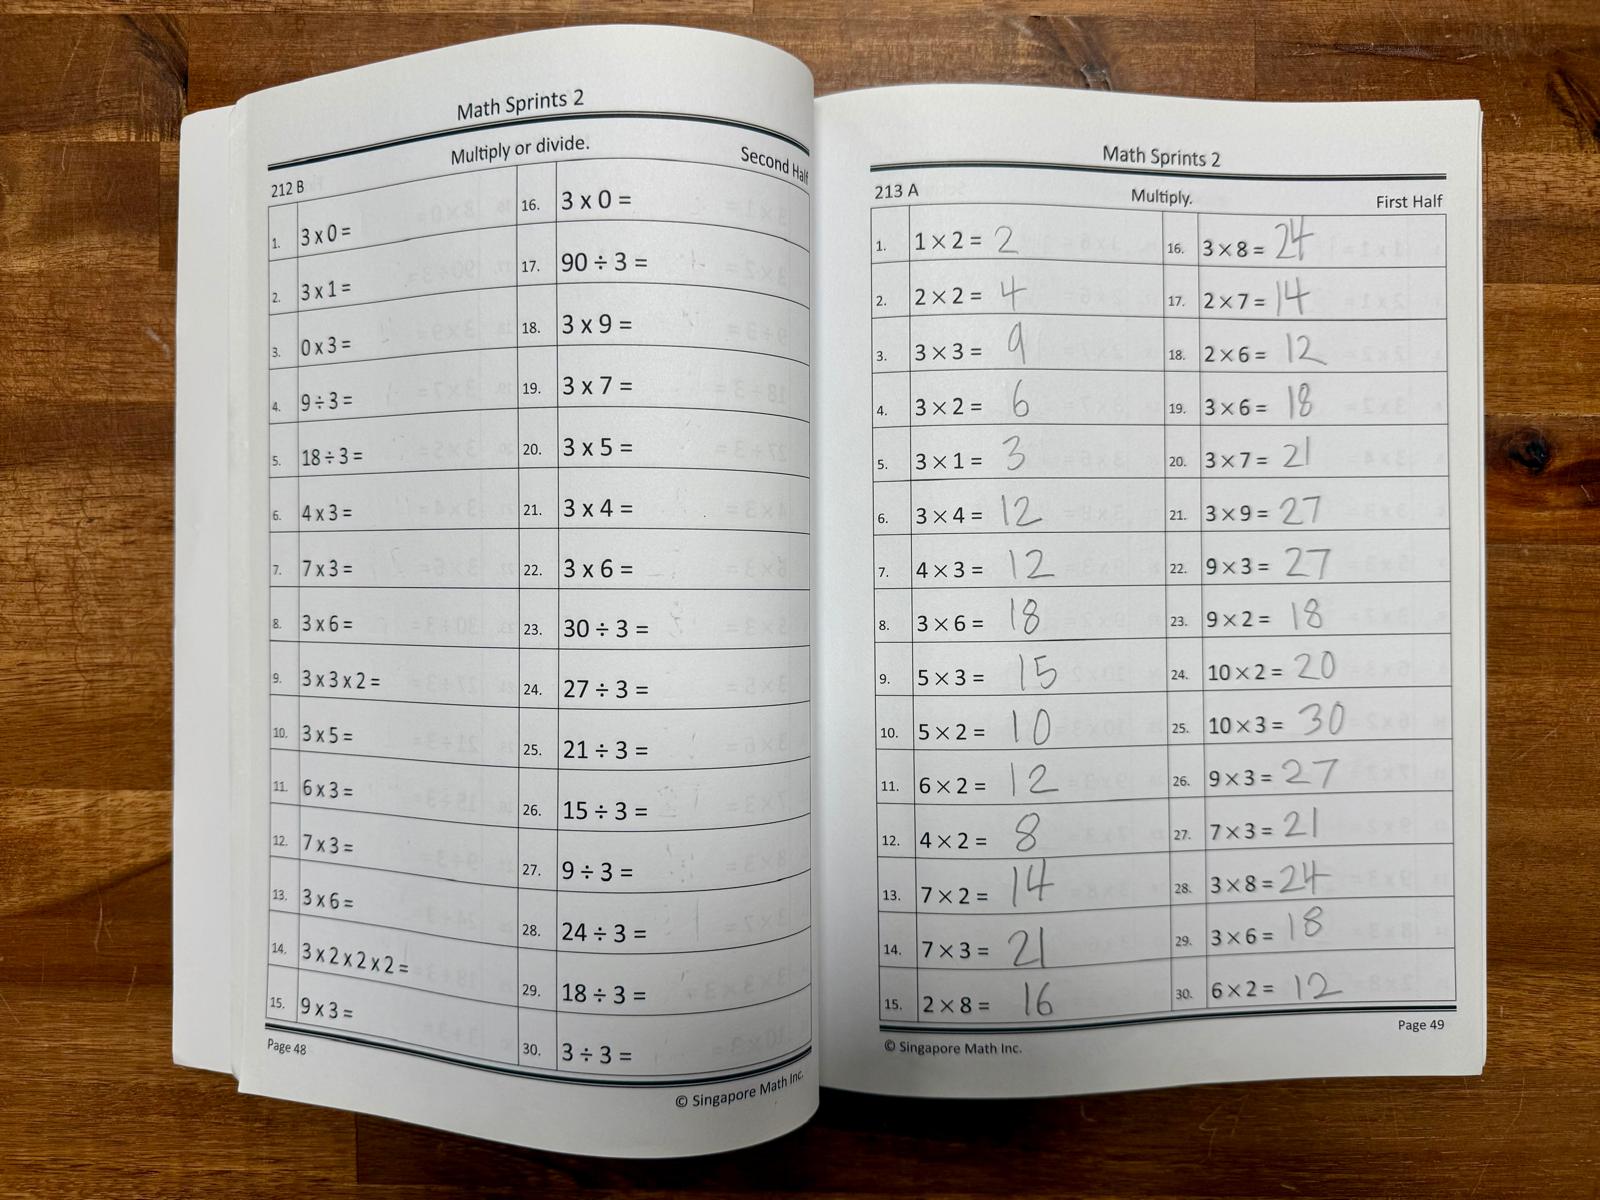 Math Sprints 2
Multiply or divide.
212 B
Second Half
1. 3 x 0 =
2. 3 x 1 =
3. 0 x 3 =
4. 9 ÷ 3 =
5. 18 ÷ 3 =
6. 4 x 3 =
7. 7 x 3 =
8. 3 x 6 =
9. 3 x 3 x 2 =
10. 3 x 5 =
11. 6 x 3 =
12. 7 x 3 =
13. 3 x 6 =
14. 3 x 2 x 2 x 2 =
15. 9 x 3 =
16. 3 x 0 =
17. 90 ÷ 3 =
18. 3 x 9 =
19. 3 x 7 =
20. 3 x 5 =
21. 3 x 4 =
22. 3 x 6 =
23. 30 ÷ 3 =
24. 27 ÷ 3 =
25. 21 ÷ 3 =
26. 15 ÷ 3 =
27. 9 ÷ 3 =
28. 24 ÷ 3 =
29. 18 ÷ 3 =
30. 3 ÷ 3 =
Page 48
© Singapore Math Inc.
Math Sprints 2
213 A
Multiply.
First Half
1. 1 × 2 = 2
2. 2 × 2 = 4
3. 3 × 3 = 9
4. 3 × 2 = 6
5. 3 × 1 = 3
6. 3 × 4 = 12
7. 4 × 3 = 12
8. 3 × 6 = 18
9. 5 × 3 = 15
10. 5 × 2 = 10
11. 6 × 2 = 12
12. 4 × 2 = 8
13. 7 × 2 = 14
14. 7 × 3 = 21
15. 2 × 8 = 16
16. 3 × 8 = 24
17. 2 × 7 = 14
18. 2 × 6 = 12
19. 3 × 6 = 18
20. 3 × 7 = 21
21. 3 × 9 = 27
22. 9 × 3 = 27
23. 9 × 2 = 18
24. 10 × 2 = 20
25. 10 × 3 = 30
26. 9 × 3 = 27
27. 7 × 3 = 21
28. 3 × 8 = 24
29. 3 × 6 = 18
30. 6 × 2 = 12
Page 49
© Singapore Math Inc.